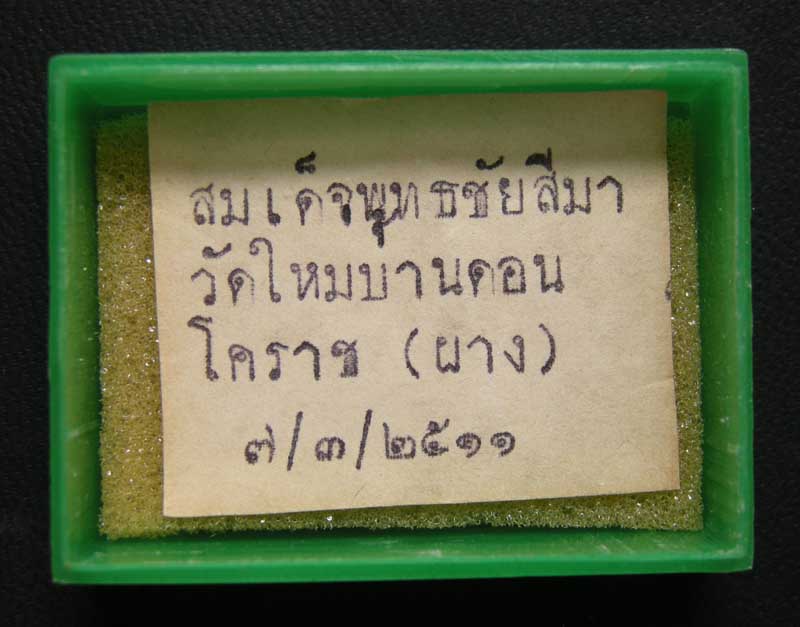 สมเด็จพุทธชัยสีมา
วัดใหมบานดอน
โคราช (ผาง)
๗/๓/๒๕๑๑